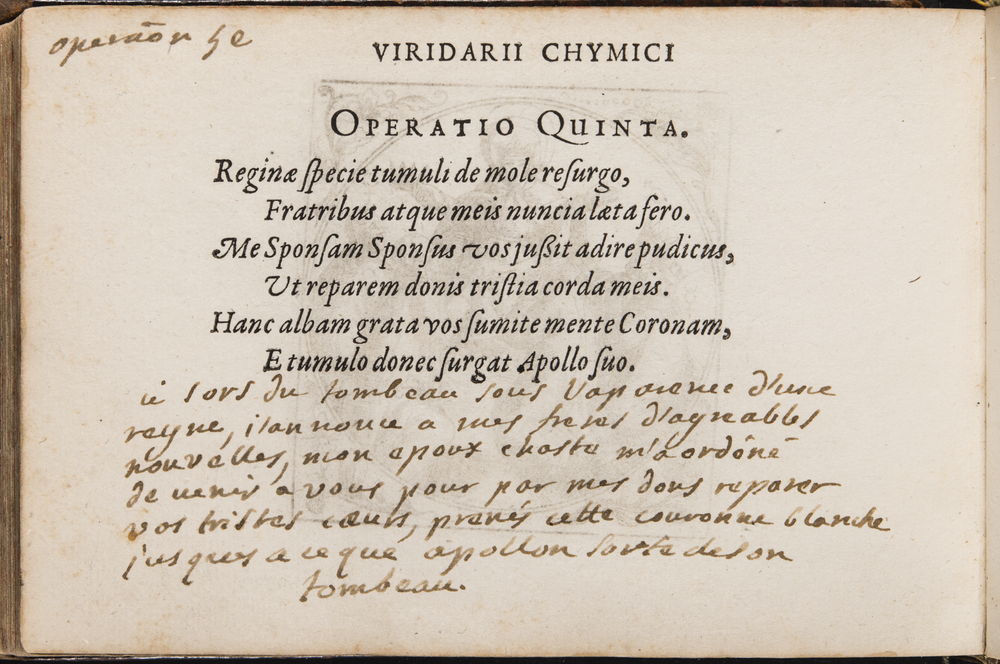 operatiōn 5e
VIRIDARII CHYMICI
OPERATIO QUINTA.
Reginæ ſpecie tumuli de mole reſurgo,
Fratribus atque meis nuncia læta fero.
Me Sponſam Sponſus vos jußit adire pudicus,
Ut reparem donis triſtia corda meis.
Hanc albam grata vos ſumite mente Coronam,
E tumulo donec ſurgat Apollo ſuo.
ie sors du tombeau sous l'aparence d'une
reyne, j'annonce a mes freres d'agreables
nouvelles, mon epoux chaste m'a ordōné
de venir a vous pour par mes dons reparer
vos tristes cœurs, prenés cette couronne blanche
jusques a ce que apollon sorte de son
tombeau.